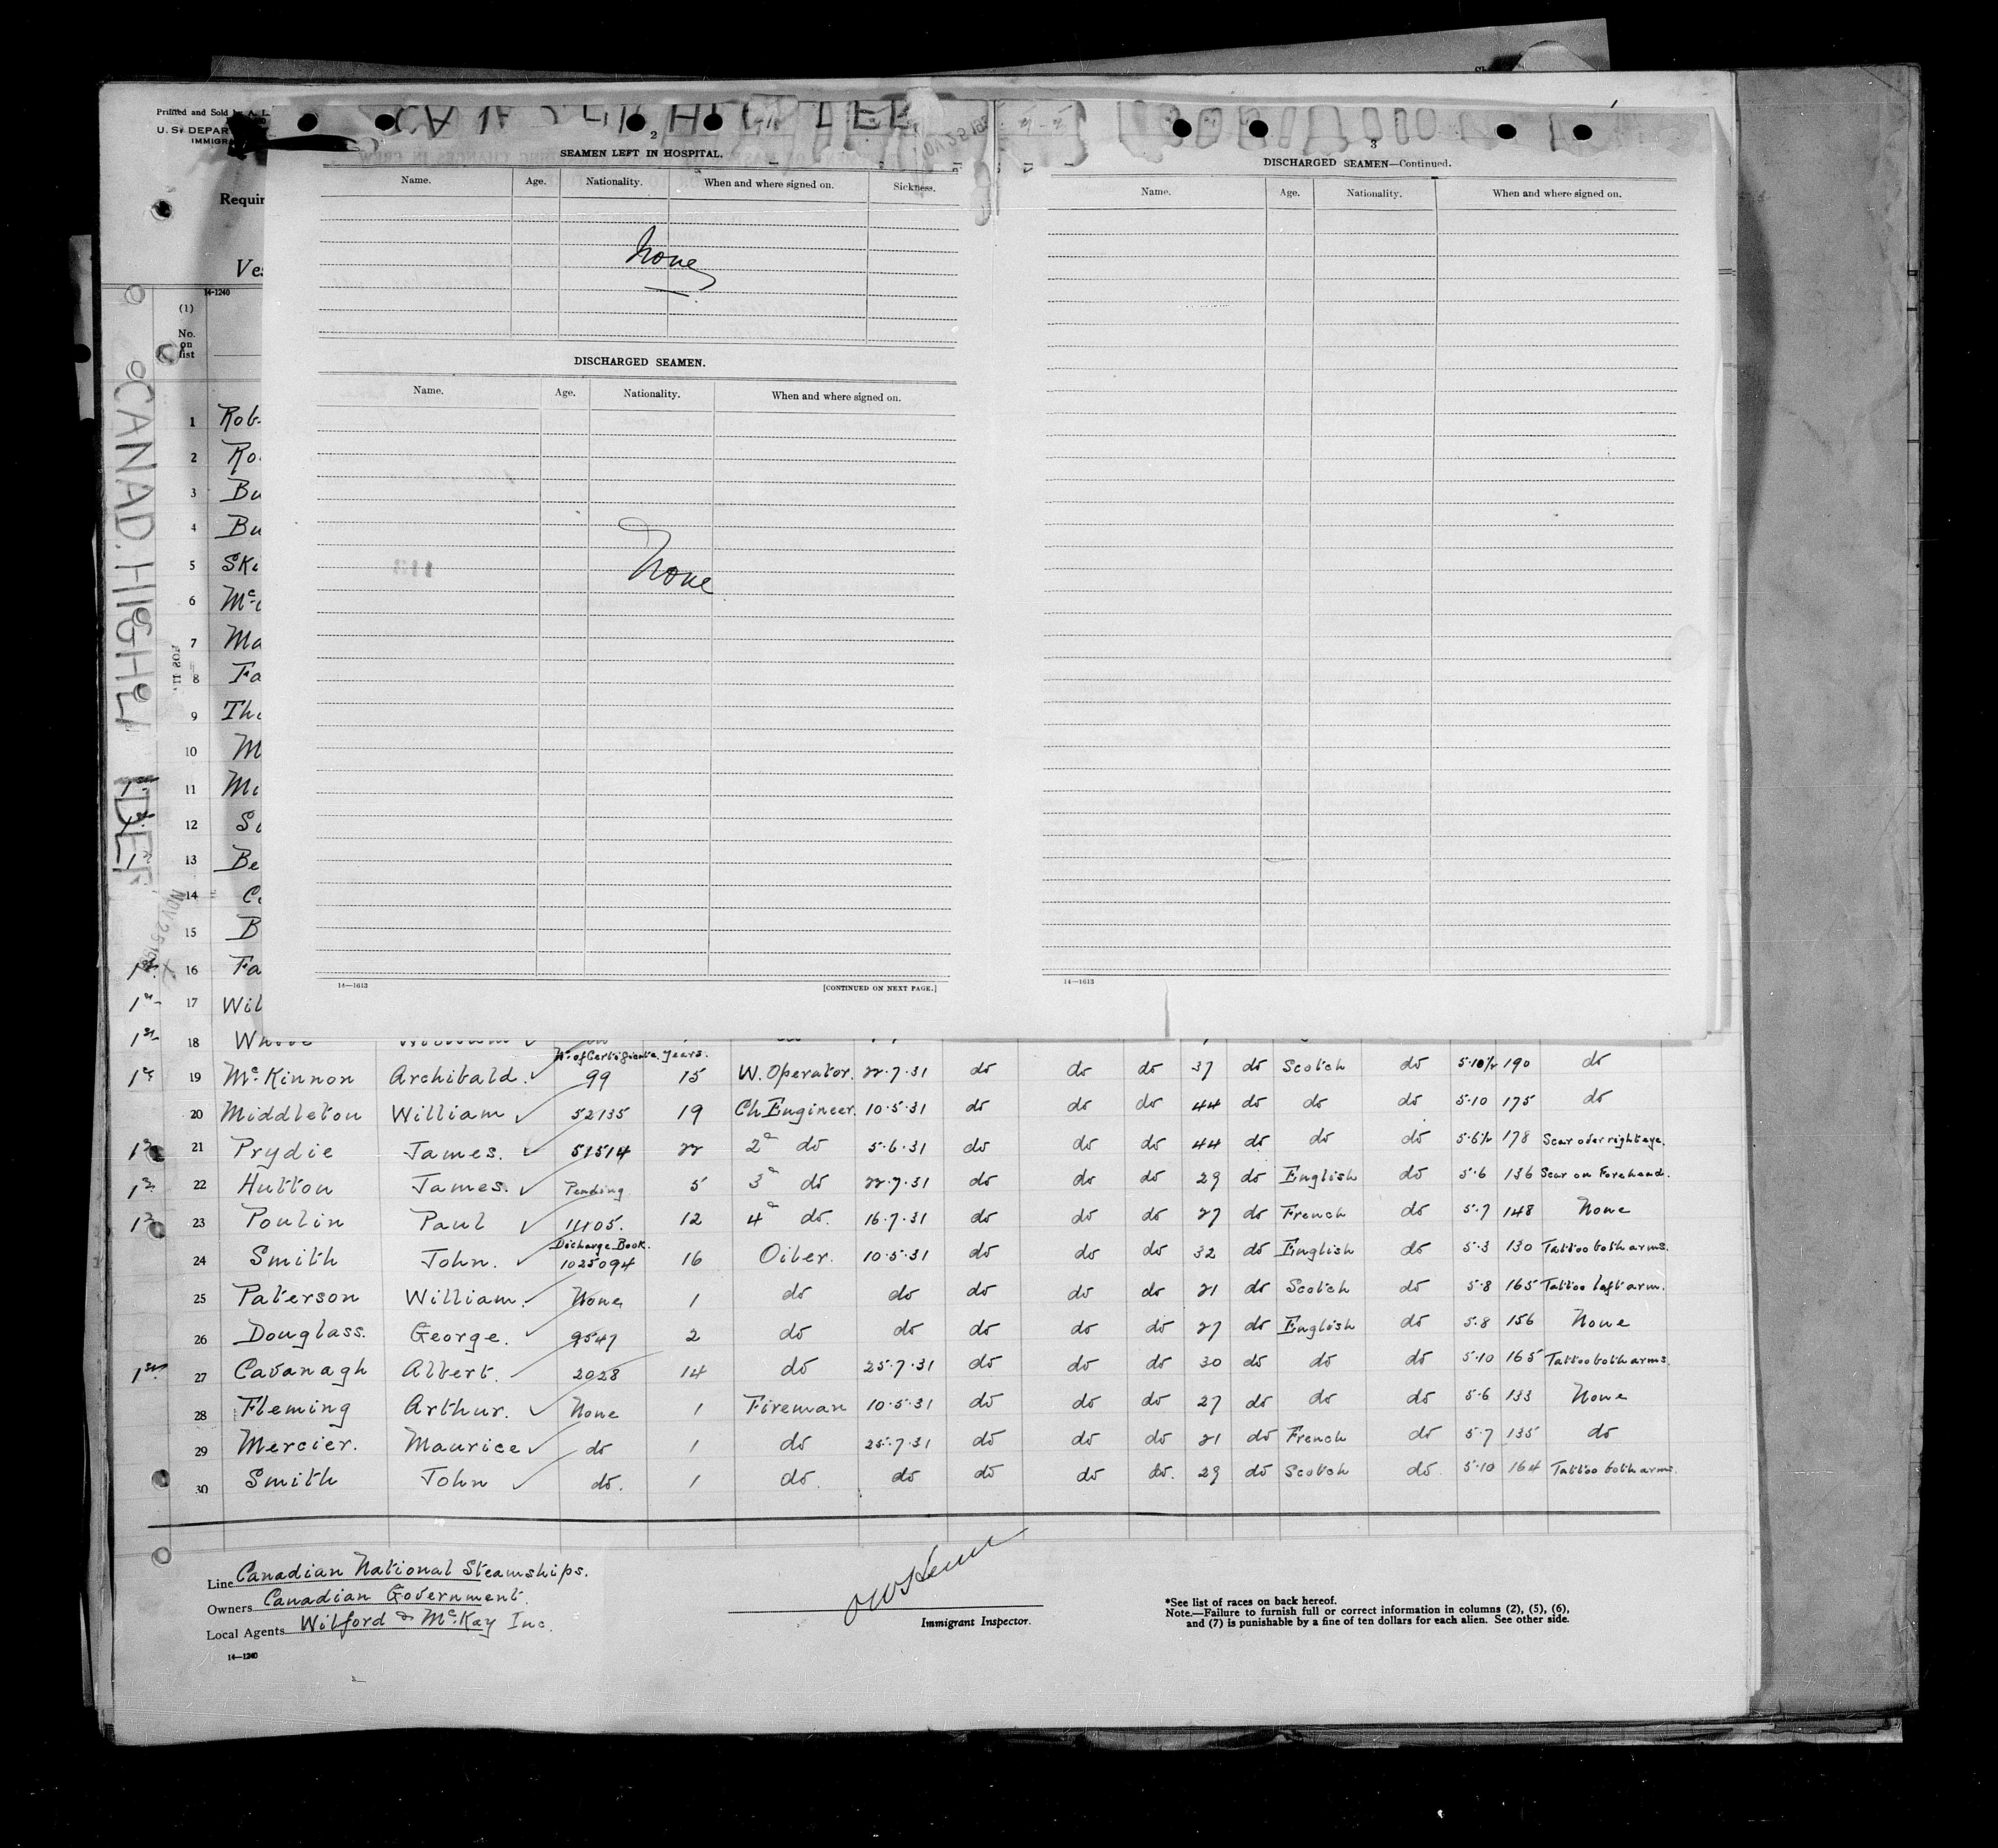 Printed and Sold by A. L.
U. S. DEPAR
IMMIGRA
Requir
Ves
14-1240
(1)
No. on list
CANAD. HIGHL
NOV 25
2
SEAMEN LEFT IN HOSPITAL.
Name. Age. Nationality. When and where signed on. Sickness.
None
DISCHARGED SEAMEN.
Name. Age. Nationality. When and where signed on.
None
14—1613 [CONTINUED ON NEXT PAGE.]
3
DISCHARGED SEAMEN—Continued.
Name. Age. Nationality. When and where signed on.
14—1613
1 Rob
2 Ro
3 Bu
4 Bu
5 Sk
6 Mc
7 Ma
8 Fa
9 Th
10 M
11 M
12 S
13 Be
14 C
15 B
1st 16 Fa
1st 17 Wil
1st 18 White William
No. of Certificate. Years.
1st 19 McKinnon Archibald. 99 15 W. Operator. 22.7.31 do do do 37 do Scotch do 5.10½ 190 do
20 Middleton William 52135 19 Ch Engineer. 10.5.31 do do do 44 do do do 5.10 175 do
21 Prydie James. 51514 22 2d do 5.6.31 do do do 44 do do do 5.6½ 178 Scar over right eye.
22 Hutton James. Pending 5 3d do 22.7.31 do do do 29 do English do 5.6 136 Scar on Forehead.
23 Poulin Paul 11105. 12 4 do. 16.7.31 do do do 27 do French do 5.7 148 None
Discharge Book.
24 Smith John. 1025094 16 Oiler. 10.5.31 do do do 32 do English do 5.3 130 Tattoo both arms.
25 Paterson William. None 1 do do do do do 21 do Scotch do 5.8 165 Tattoo left arm.
26 Douglass. George. 9547 2 do do do do do 27 do English do 5.8 156 None
1st 27 Cavanagh Albert. 2028 14 do 25.7.31 do do do 30 do do do 5.10 165 Tattoo both arms.
28 Fleming Arthur. None 1 Fireman 10.5.31 do do do 27 do do do 5.6 133 None
29 Mercier. Maurice do 1 do 25.7.31 do do do 21 do French do 5.7 135 do
30 Smith John do. 1 do. do do do do. 29 do Scotch do. 5.10 164 Tattoo both arms.
Line Canadian National Steamships.
Owners Canadian Government.
Local Agents Wilford & McKay Inc.
14—1240
Immigrant Inspector.
*See list of races on back hereof.
Note.—Failure to furnish full or correct information in columns (2), (5), (6),
and (7) is punishable by a fine of ten dollars for each alien. See other side.